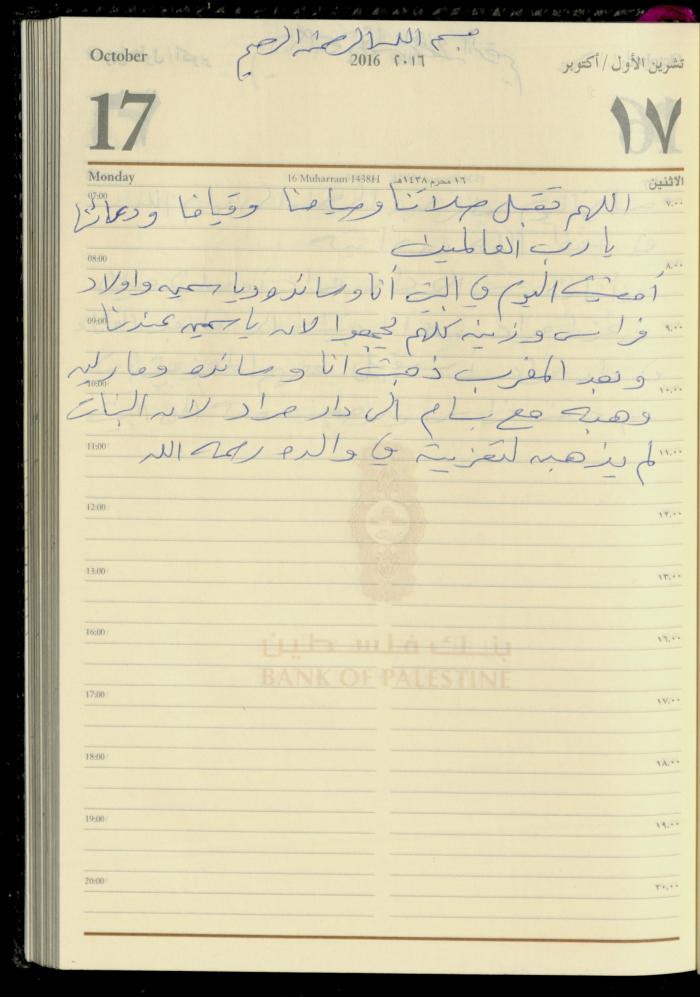 بسم الله الرحمن الرحيم
October
2016 ٢٠١٦
تشرين الأول / أكتوبر
17
١٧
Monday
16 Muharram 1438H
١٦ محرم ١٤٣٨هـ
الاثنين
07:00 ٧,٠٠
اللهم تقبل صلاتنا وصيامنا وقيامنا ودعائنا
يا رب العالمين
08:00 ٨,٠٠
أمضيت اليوم في البيت أنا وسائده وياسمين واولاد
09:00 ٩,٠٠
فراس وزينه كلهم تجمعوا لان ياسمين عندنا
وبعد المغرب ذهبت انا وسائده ومارلين
10:00 ١٠,٠٠
وهبه مع بسام الى دار مراد لان البنات
11:00 ١١,٠٠
لم يذهبن لتعزيته في والده رحمه الله
12:00 ١٢,٠٠
13:00 ١٣,٠٠
16:00 ١٦,٠٠
بنك فلسطين
BANK OF PALESTINE
17:00 ١٧,٠٠
18:00 ١٨,٠٠
19:00 ١٩,٠٠
20:00 ٢٠,٠٠